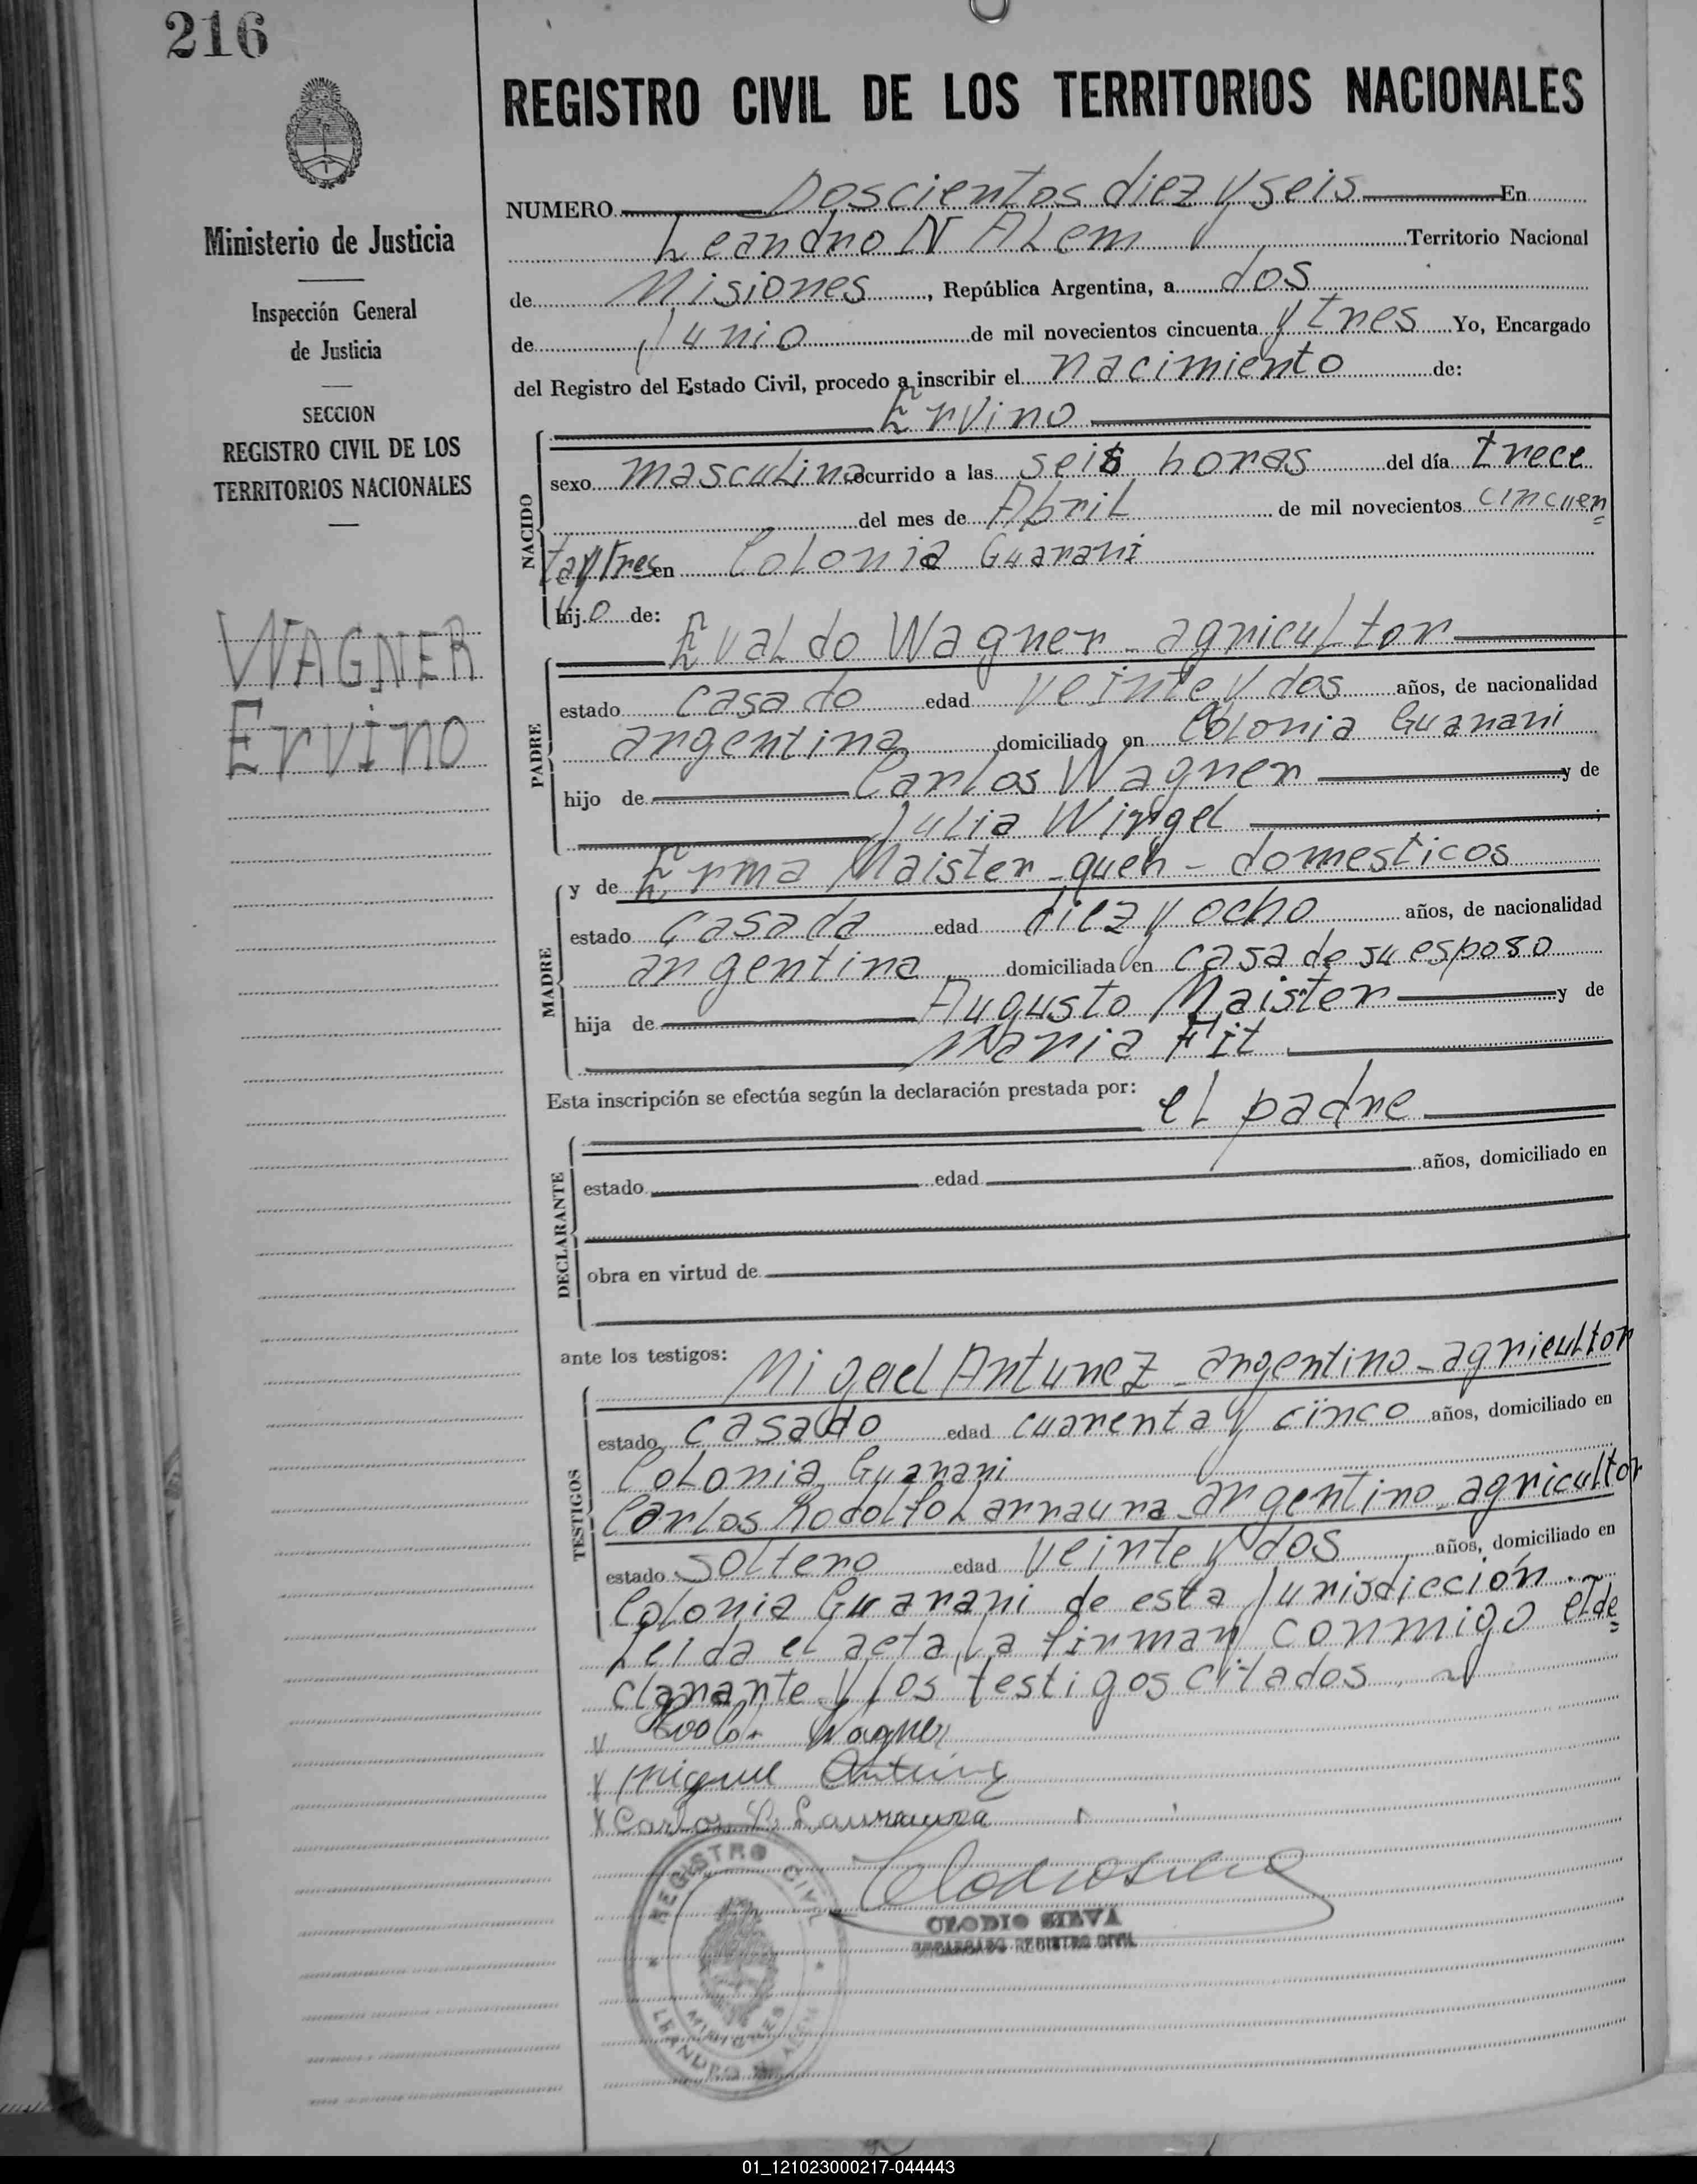 216
Ministerio de Justicia
Inspección General
de Justicia
SECCION
REGISTRO CIVIL DE LOS
TERRITORIOS NACIONALES
WAGNER
Ervino
REGISTRO CIVIL DE LOS TERRITORIOS NACIONALES
NUMERO Doscientos diez y seis En
Leandro N ALem Territorio Nacional
de Misiones, República Argentina, a dos
de Junio de mil novecientos cincuenta y tres Yo, Encargado
del Registro del Estado Civil, procedo a inscribir el nacimiento de:
Ervino
NACIDO
sexo masculino ocurrido a las seis horas del día trece
del mes de Abril de mil novecientos cincuen=
tay tres en Colonia Guarani
hijo de:
Evaldo Wagner - agricultor
PADRE
estado casado edad veinte y dos años, de nacionalidad
argentina domiciliado en Colonia Guarani
hijo de Carlos Wagner y de
Julia Wingel;
y de Erma Maister - queh - domesticos
MADRE
estado casada edad diez y ocho años, de nacionalidad
argentina domiciliada en casa de su esposo
hija de Augusto Maister y de
Maria Fit
Esta inscripción se efectúa según la declaración prestada por: el padre
DECLARANTE
estado edad años, domiciliado en
obra en virtud de
ante los testigos:
Migael Antunez - argentino - agricultor
TESTIGOS
estado casado edad cuarenta y cinco años, domiciliado en
Colonia Guarani
Carlos Rodolfo Larraura argentino - agricultor
estado soltero edad veinte y dos años, domiciliado en
Colonia Guarani de esta Jurisdicción. -
Leida el acta, la firman conmigo el de=
clarante y los testigos citados
Wagner
x Miguel Antunez
x Carlos R. Larraura
REGISTRO CIVIL
MISIONES
LEANDRO N. ALEM
CLODIO SILVA
ENCARGADO REGISTRO CIVIL
01_121023000217-044443